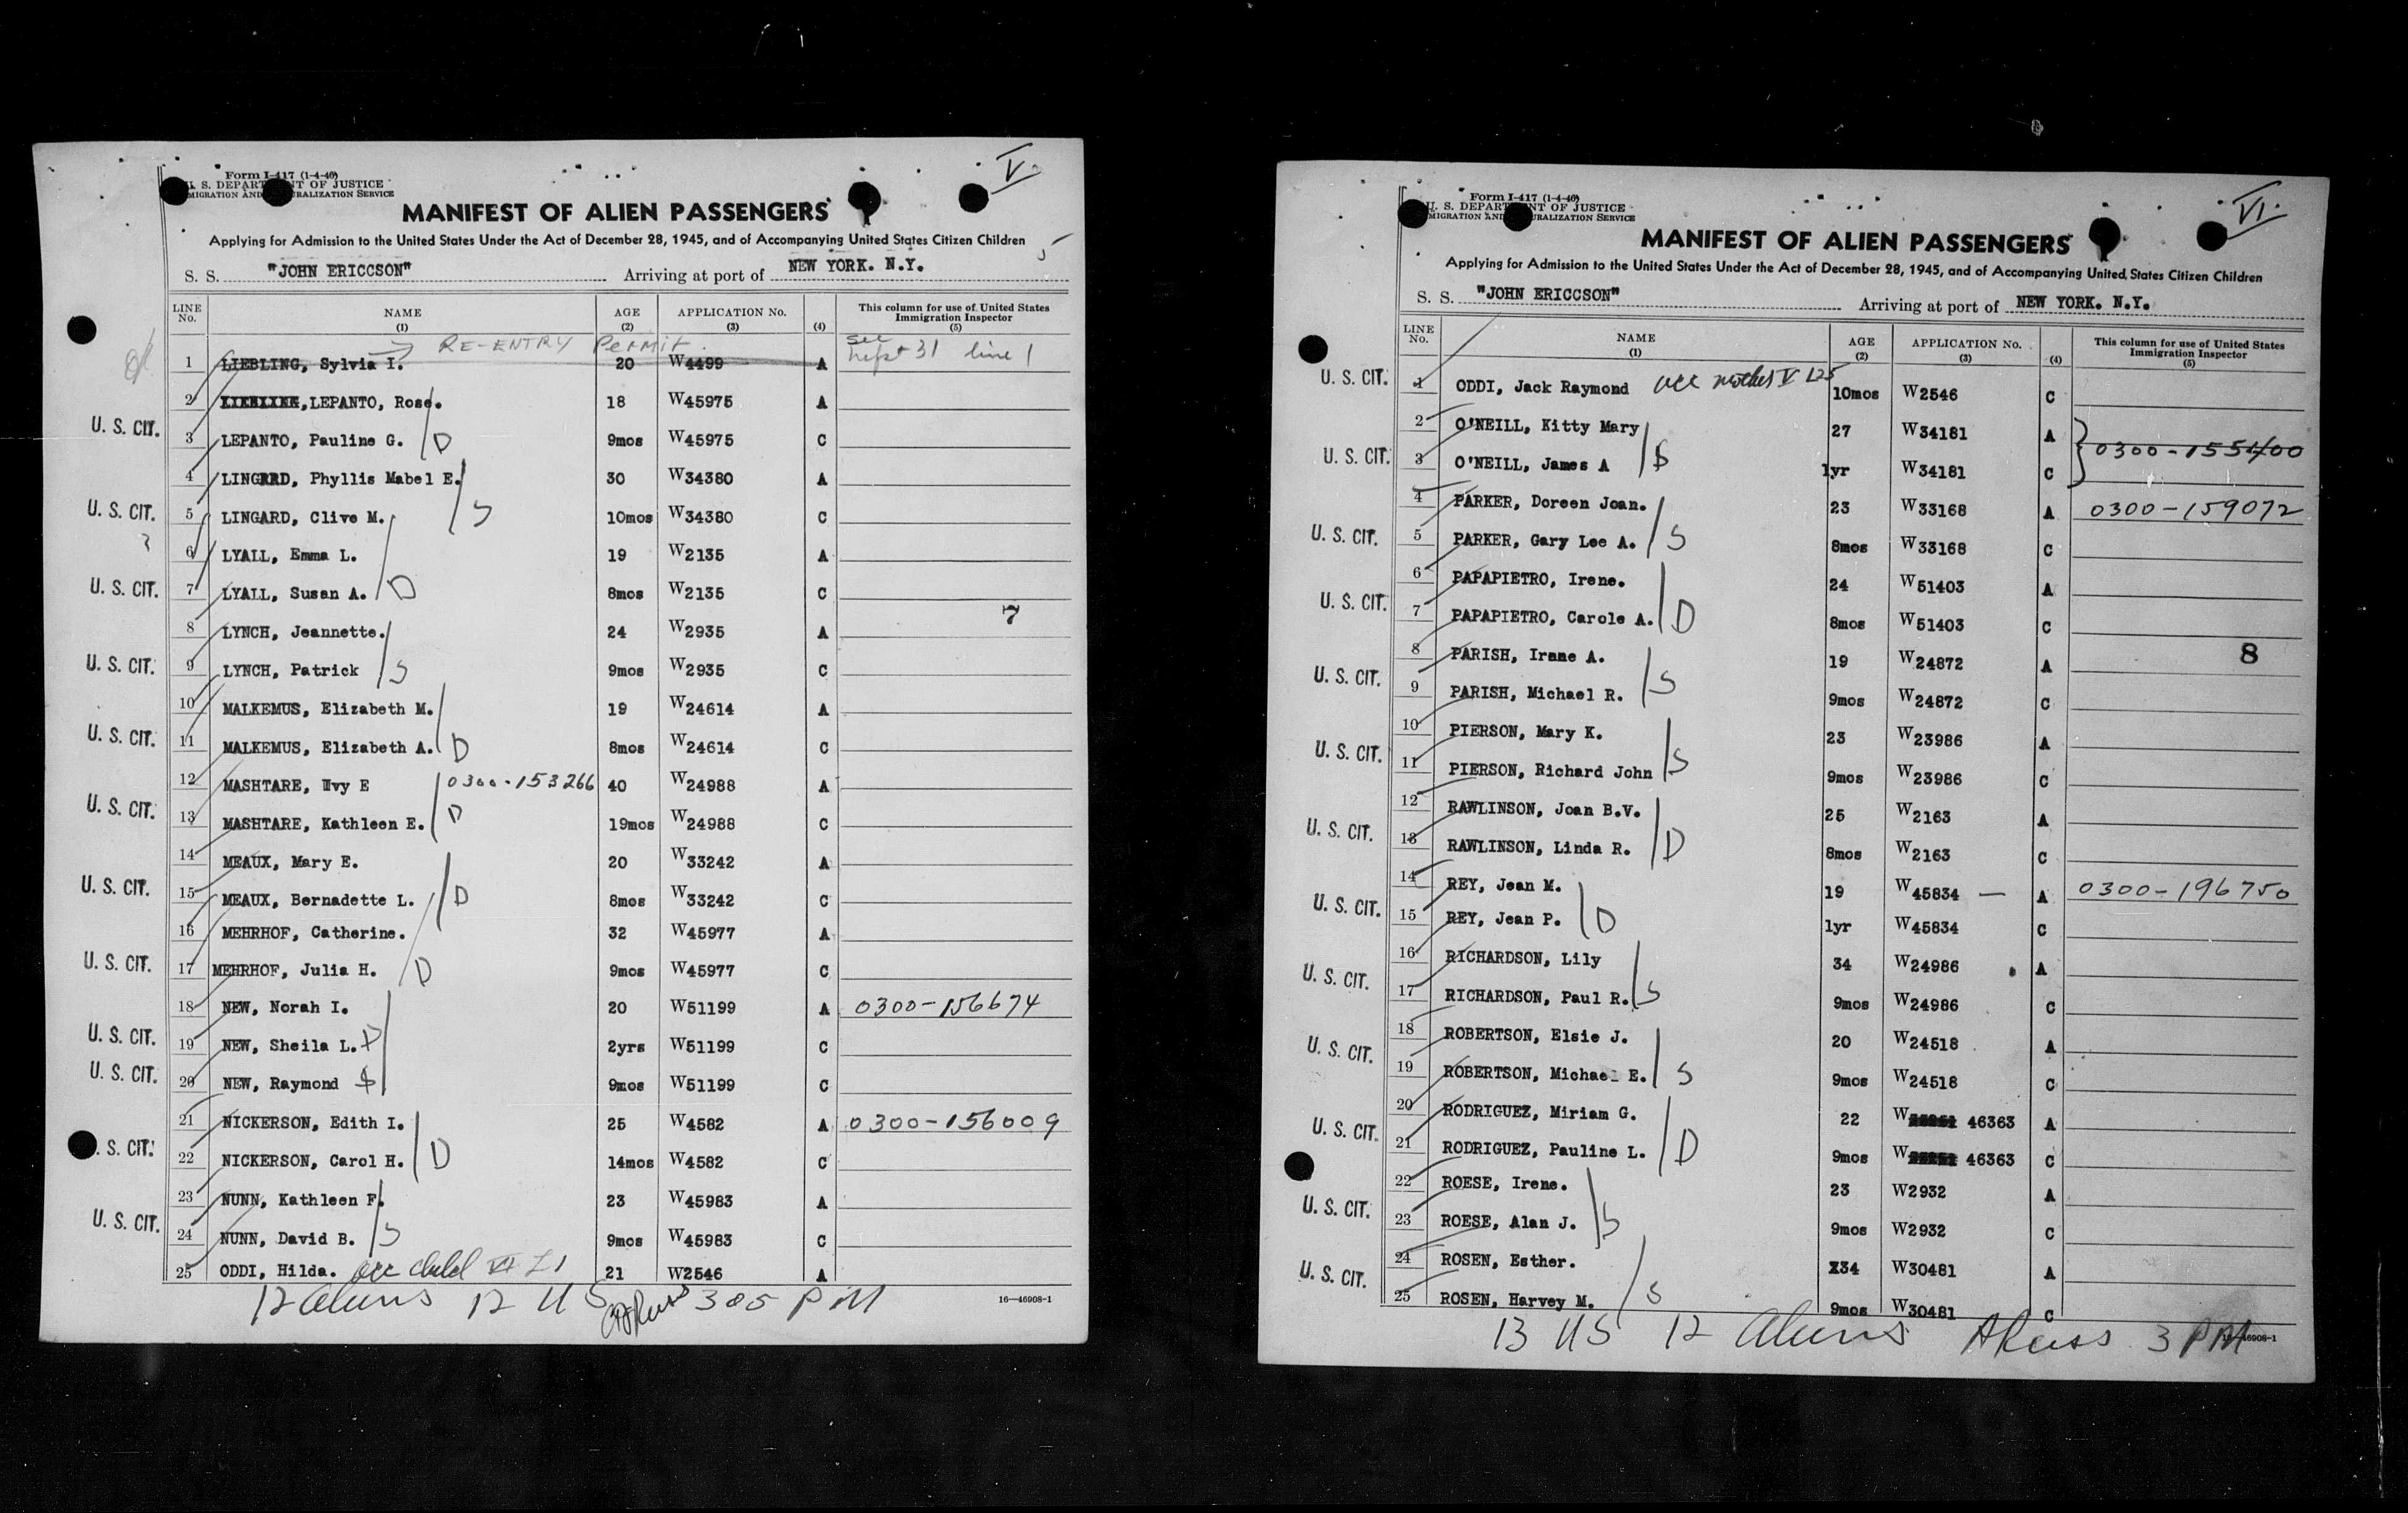 V.
Form I-417 (1-4-46)
U. S. DEPARTMENT OF JUSTICE
IMMIGRATION AND NATURALIZATION SERVICE
MANIFEST OF ALIEN PASSENGERS
Applying for Admission to the United States Under the Act of December 28, 1945, and of Accompanying United States Citizen Children
5
S. S. "JOHN ERICCSON" Arriving at port of NEW YORK. N.Y.
LINE No. NAME (1) AGE (2) APPLICATION No. (3) (4) This column for use of United States Immigration Inspector (5)
RE-ENTRY Permit. see
1 LIEBLING, Sylvia I. 20 W4499 A 31 line 1
2 LEPANTO, Rose. 18 W45975 A
U. S. CIT. 3 LEPANTO, Pauline G. D 9mos W45975 C
4 LINGRRD, Phyllis Mabel E. 30 W34380 A
U. S. CIT. 5 LINGARD, Clive M. S 10mos W34380 C
6 LYALL, Emma L. 19 W2135 A
U. S. CIT. 7 LYALL, Susan A. D 8mos W2135 C
7
8 LYNCH, Jeannette. 24 W2935 A
U. S. CIT. 9 LYNCH, Patrick S 9mos W2935 C
10 MALKEMUS, Elizabeth M. 19 W24614 A
U. S. CIT. 11 MALKEMUS, Elizabeth A. D 8mos W24614 C
12 MASHTARE, Ivy E 0300-153266 40 W24988 A
U. S. CIT. 13 MASHTARE, Kathleen E. D 19mos W24988 C
14 MEAUX, Mary E. 20 W33242 A
U. S. CIT. 15 MEAUX, Bernadette L. D 8mos W33242 C
16 MEHRHOF, Catherine. 32 W45977 A
U. S. CIT. 17 MEHRHOF, Julia H. D 9mos W45977 C
18 NEW, Norah I. 20 W51199 A 0300-156674
U. S. CIT. 19 NEW, Sheila L. D 2yrs W51199 C
U. S. CIT. 20 NEW, Raymond S 9mos W51199 C
21 NICKERSON, Edith I. 25 W4582 A 0300-156009
. S. CIT. 22 NICKERSON, Carol H. D 14mos W4582 C
23 NUNN, Kathleen F. 23 W45983 A
U. S. CIT. 24 NUNN, David B. S 9mos W45983 C
25 ODDI, Hilda. acc child VI L1 21 W2546 A
12 aliens 12 US 305 PM
16—46908-1
VI.
Form I-417 (1-4-46)
U. S. DEPARTMENT OF JUSTICE
IMMIGRATION AND NATURALIZATION SERVICE
MANIFEST OF ALIEN PASSENGERS
Applying for Admission to the United States Under the Act of December 28, 1945, and of Accompanying United States Citizen Children
S. S. "JOHN ERICCSON" Arriving at port of NEW YORK. N.Y.
LINE No. NAME (1) AGE (2) APPLICATION No. (3) (4) This column for use of United States Immigration Inspector (5)
U. S. CIT. 1 ODDI, Jack Raymond acc mother V L25 10mos W2546 C
2 O'NEILL, Kitty Mary 27 W34181 A
U. S. CIT. 3 O'NEILL, James A S 1yr W34181 C
4 PARKER, Doreen Joan. 23 W33168 A 0300-159072
U. S. CIT. 5 PARKER, Gary Lee A. S 8mos W33168 C
6 PAPAPIETRO, Irene. 24 W51403 A
U. S. CIT. 7 PAPAPIETRO, Carole A. D 8mos W51403 C
8
8 PARISH, Irene A. 19 W24872 A
U. S. CIT. 9 PARISH, Michael R. S 9mos W24872 C
10 PIERSON, Mary K. 23 W23986 A
U. S. CIT. 11 PIERSON, Richard John S 9mos W23986 C
12 RAWLINSON, Joan B.V. 25 W2163 A
U. S. CIT. 13 RAWLINSON, Linda R. D 8mos W2163 C
14 REY, Jean M. 19 W45834 — A 0300-196750
U. S. CIT. 15 REY, Jean P. D 1yr W45834 C
16 RICHARDSON, Lily 34 W24986 A
U. S. CIT. 17 RICHARDSON, Paul R. S 9mos W24986 C
18 ROBERTSON, Elsie J. 20 W24518 A
U. S. CIT. 19 ROBERTSON, Michael E. S 9mos W24518 C
20 RODRIGUEZ, Miriam G. 22 W 46363 A
U. S. CIT. 21 RODRIGUEZ, Pauline L. D 9mos W 46363 C
22 ROESE, Irene. 23 W2932 A
U. S. CIT. 23 ROESE, Alan J. S 9mos W2932 C
24 ROSEN, Esther. 34 W30481 A
U. S. CIT. 25 ROSEN, Harvey M. S 9mos W30481 C
13 US 12 aliens 3 PM
16—46908-1